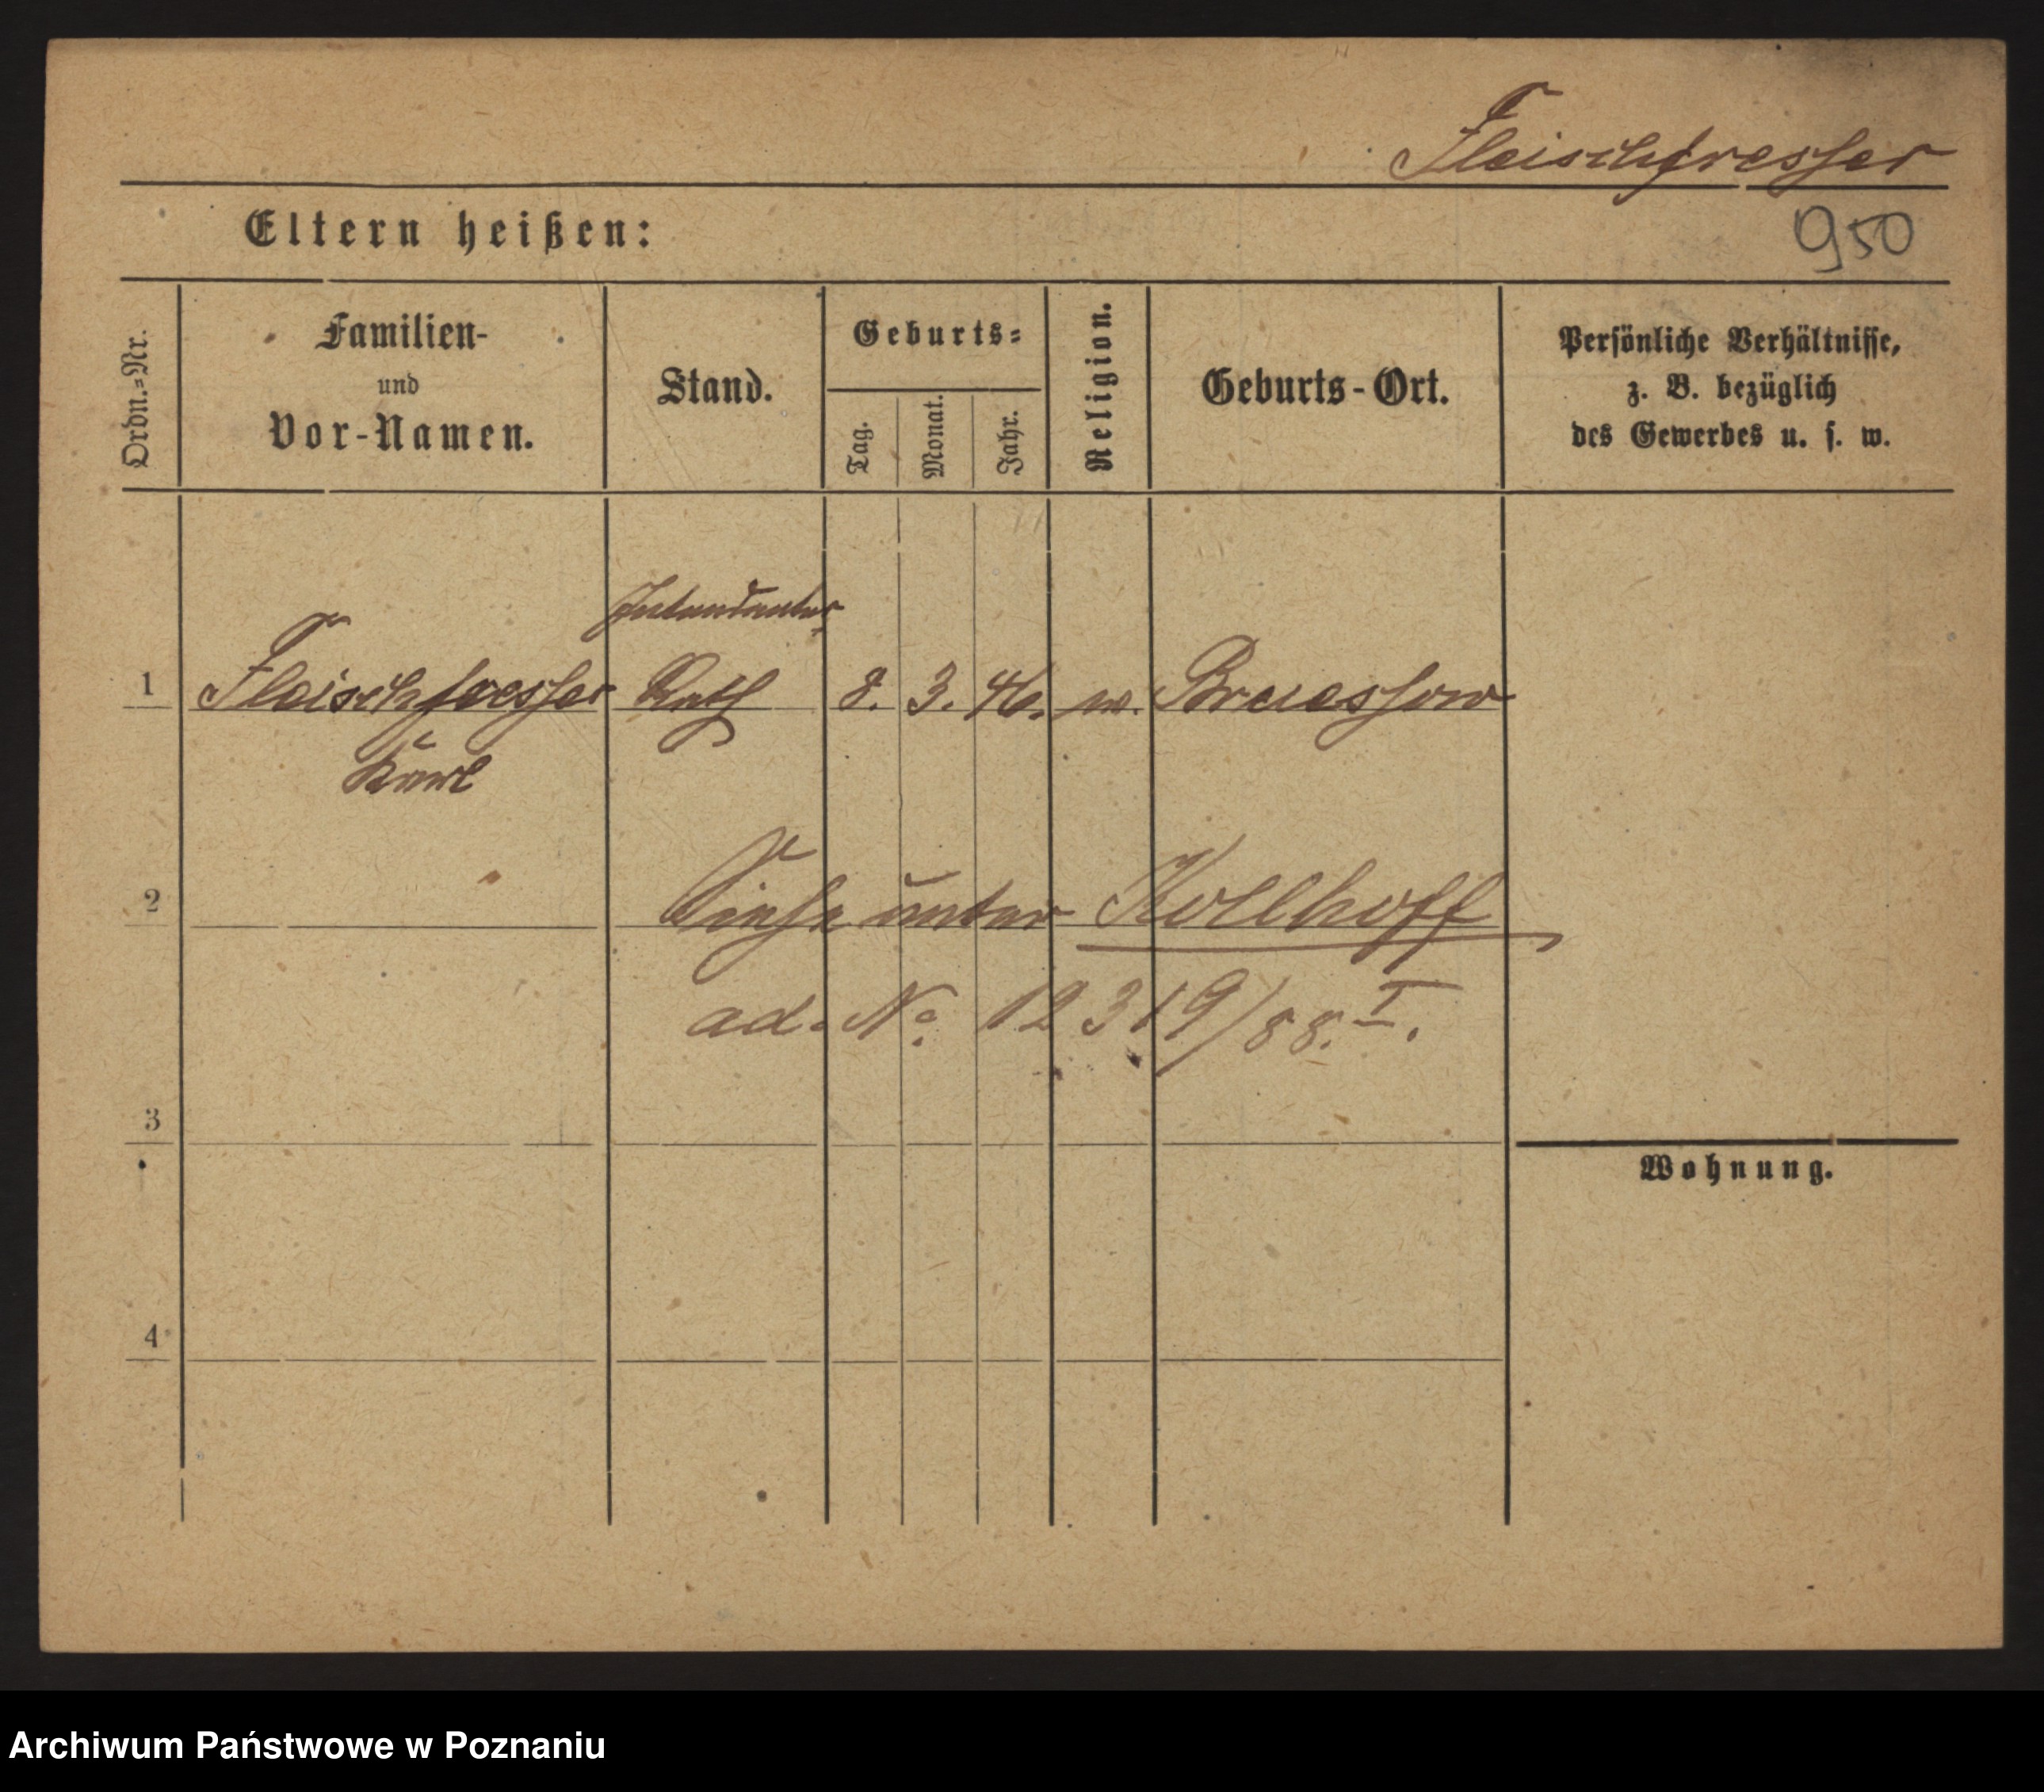 Fleischfresser
Eltern heißen:
950
Ordn.=Nr.
Familien-
und
Vor-Namen.
Stand.
Geburts=
Tag.
Monat.
Jahr.
Religion.
Geburts-Ort.
Persönliche Verhältnisse,
z. B. bezüglich
des Gewerbes u. s. w.
Intendantur
1 Fleischfresser Rath 8. 3. 46. Bruessow
Karl
2 Siehe unter Kollhoff
ad. No 12319/88. I.
3
Wohnung.
4
Archiwum Państwowe w Poznaniu